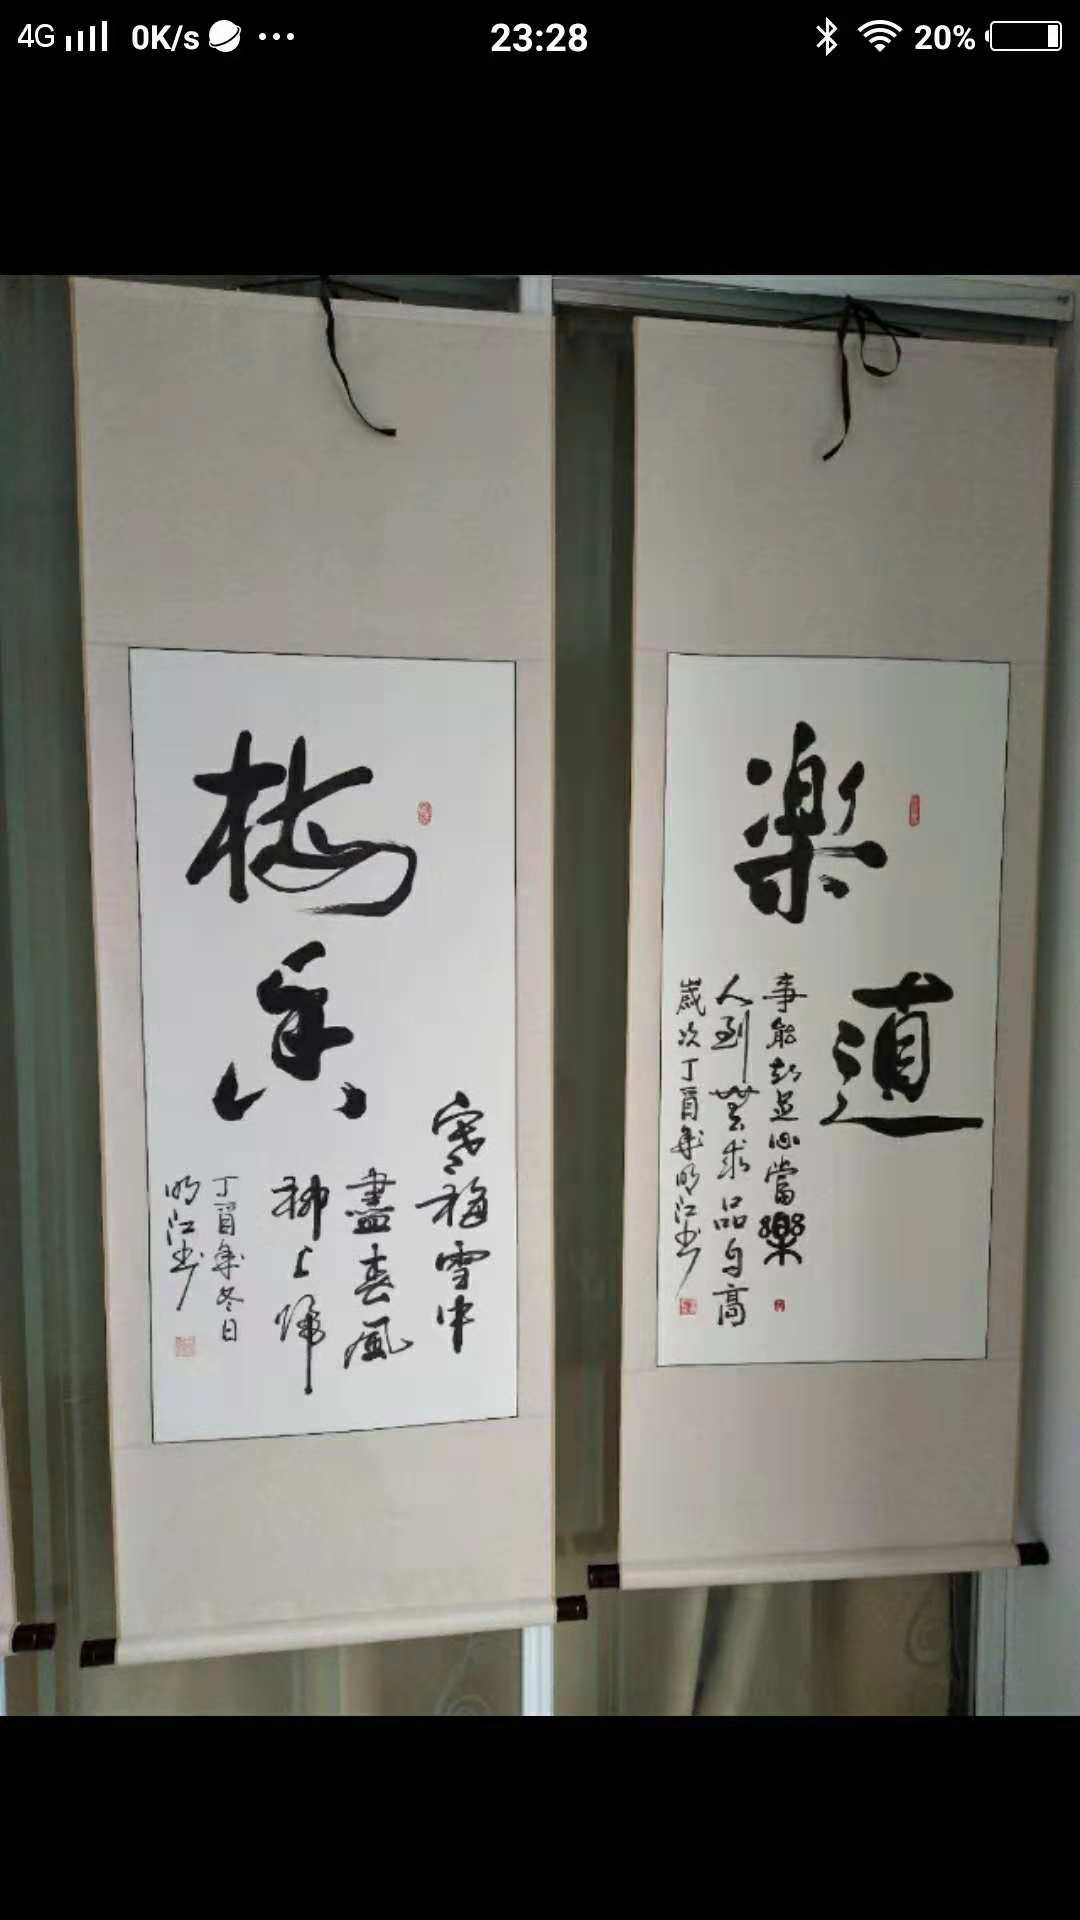 4G 0K/s 23:28 20%
梅香
寒梅雪中
盡春風
柳上歸
丁酉年冬日
明江书
楽道
事能知足心當樂
人到無求品自高
歲次丁酉年明江书